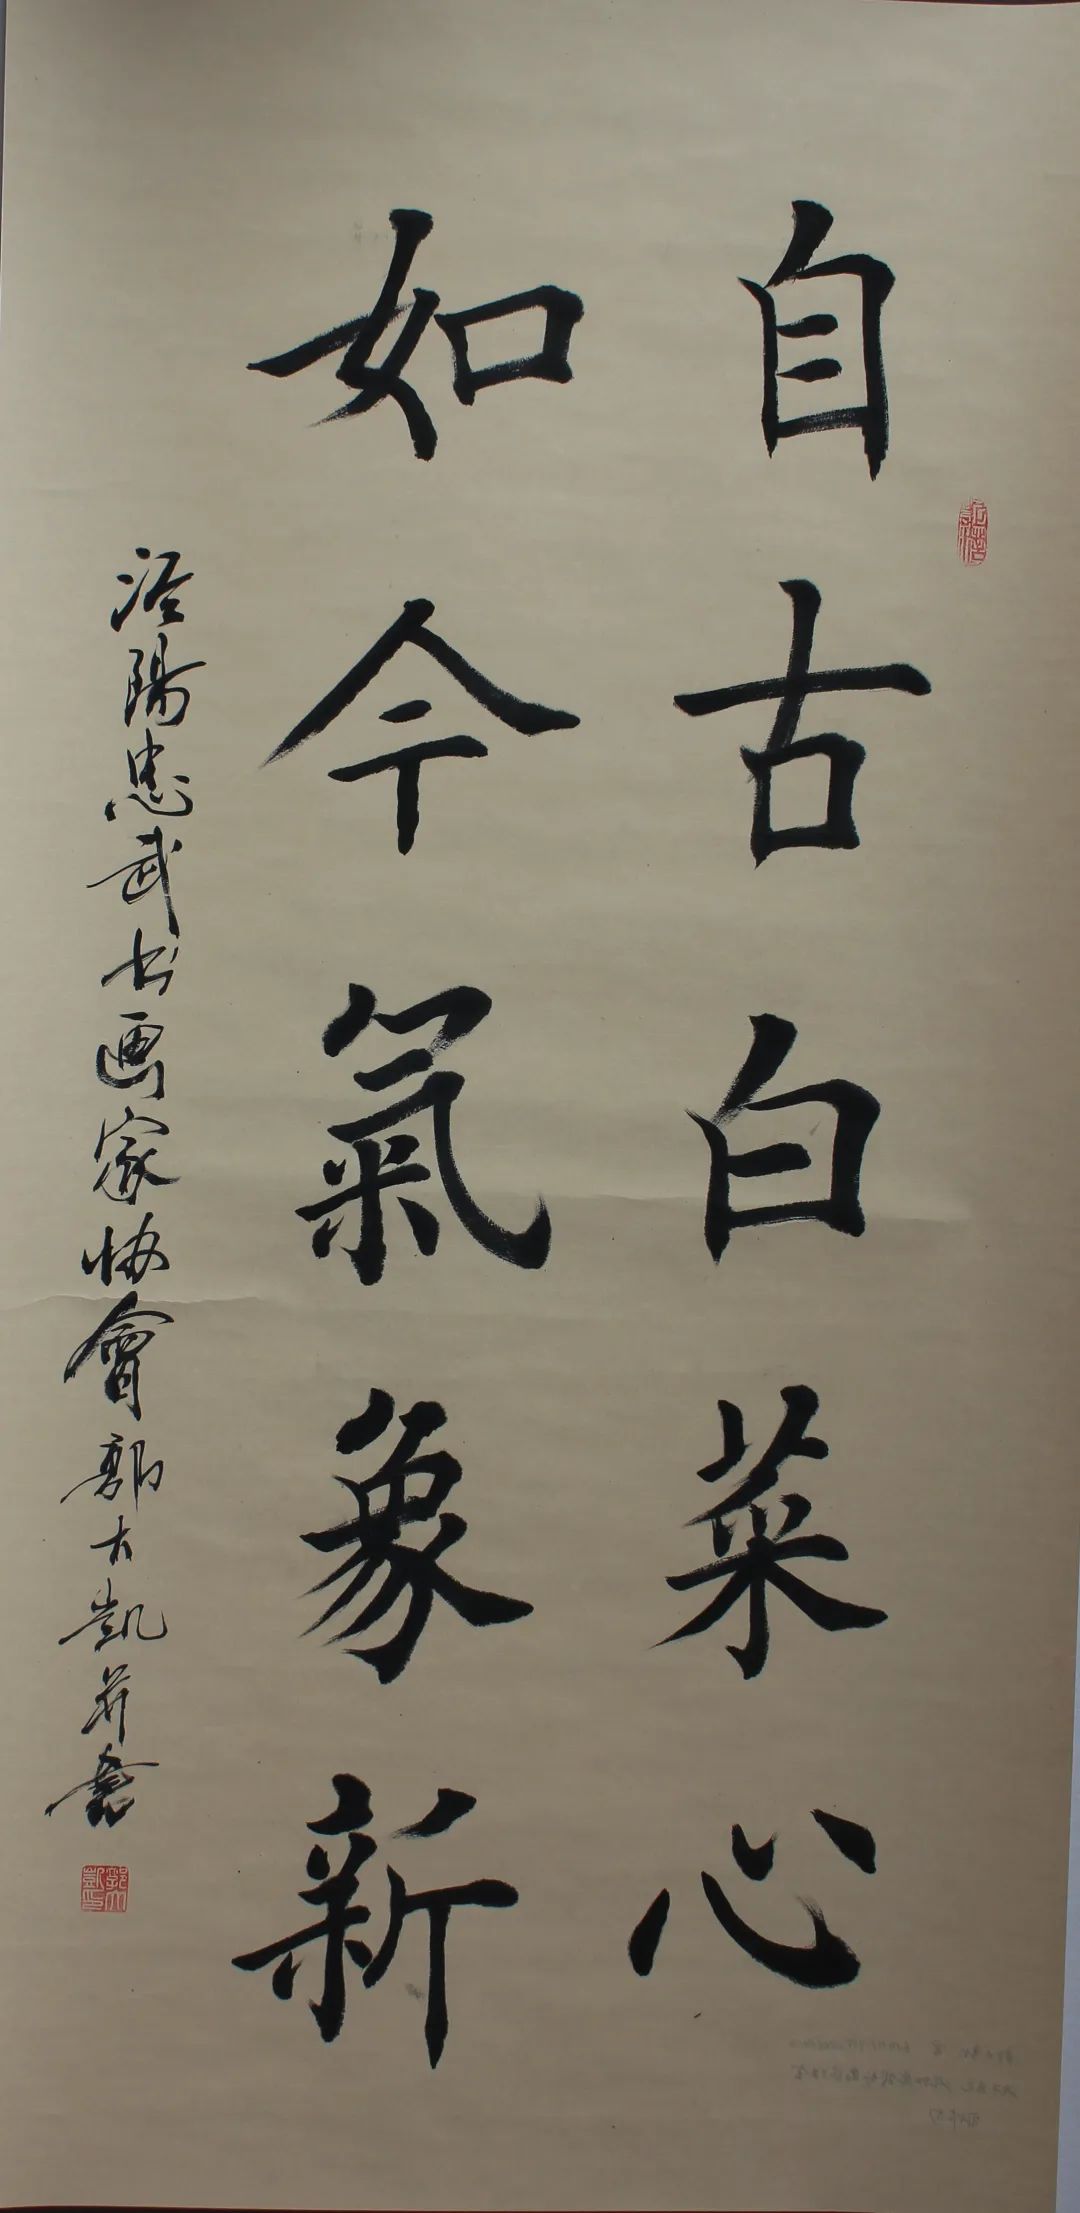 自古白菜心
如今氣象新
泾陽忠武书画家协會郭大凯并書